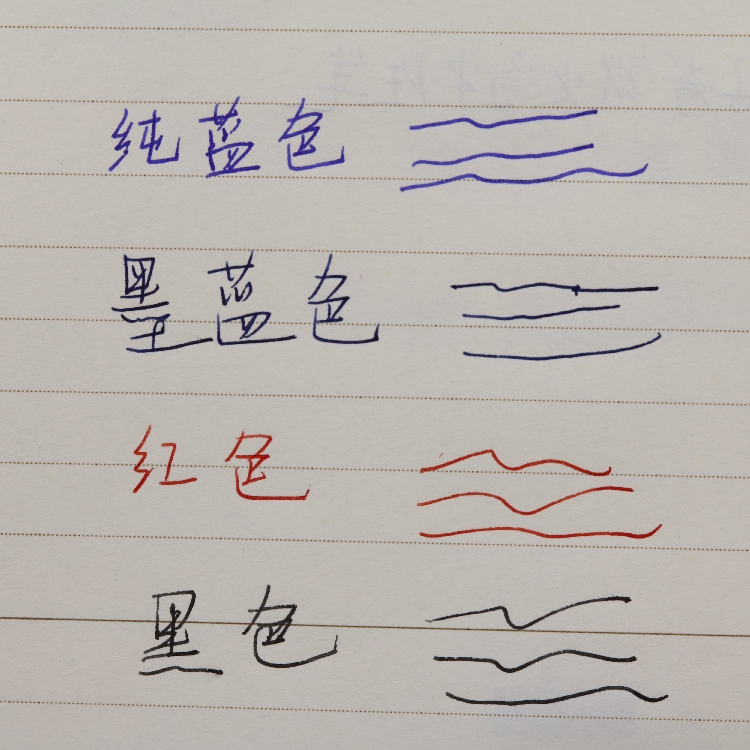 纯蓝色
墨蓝色
红色
黑色